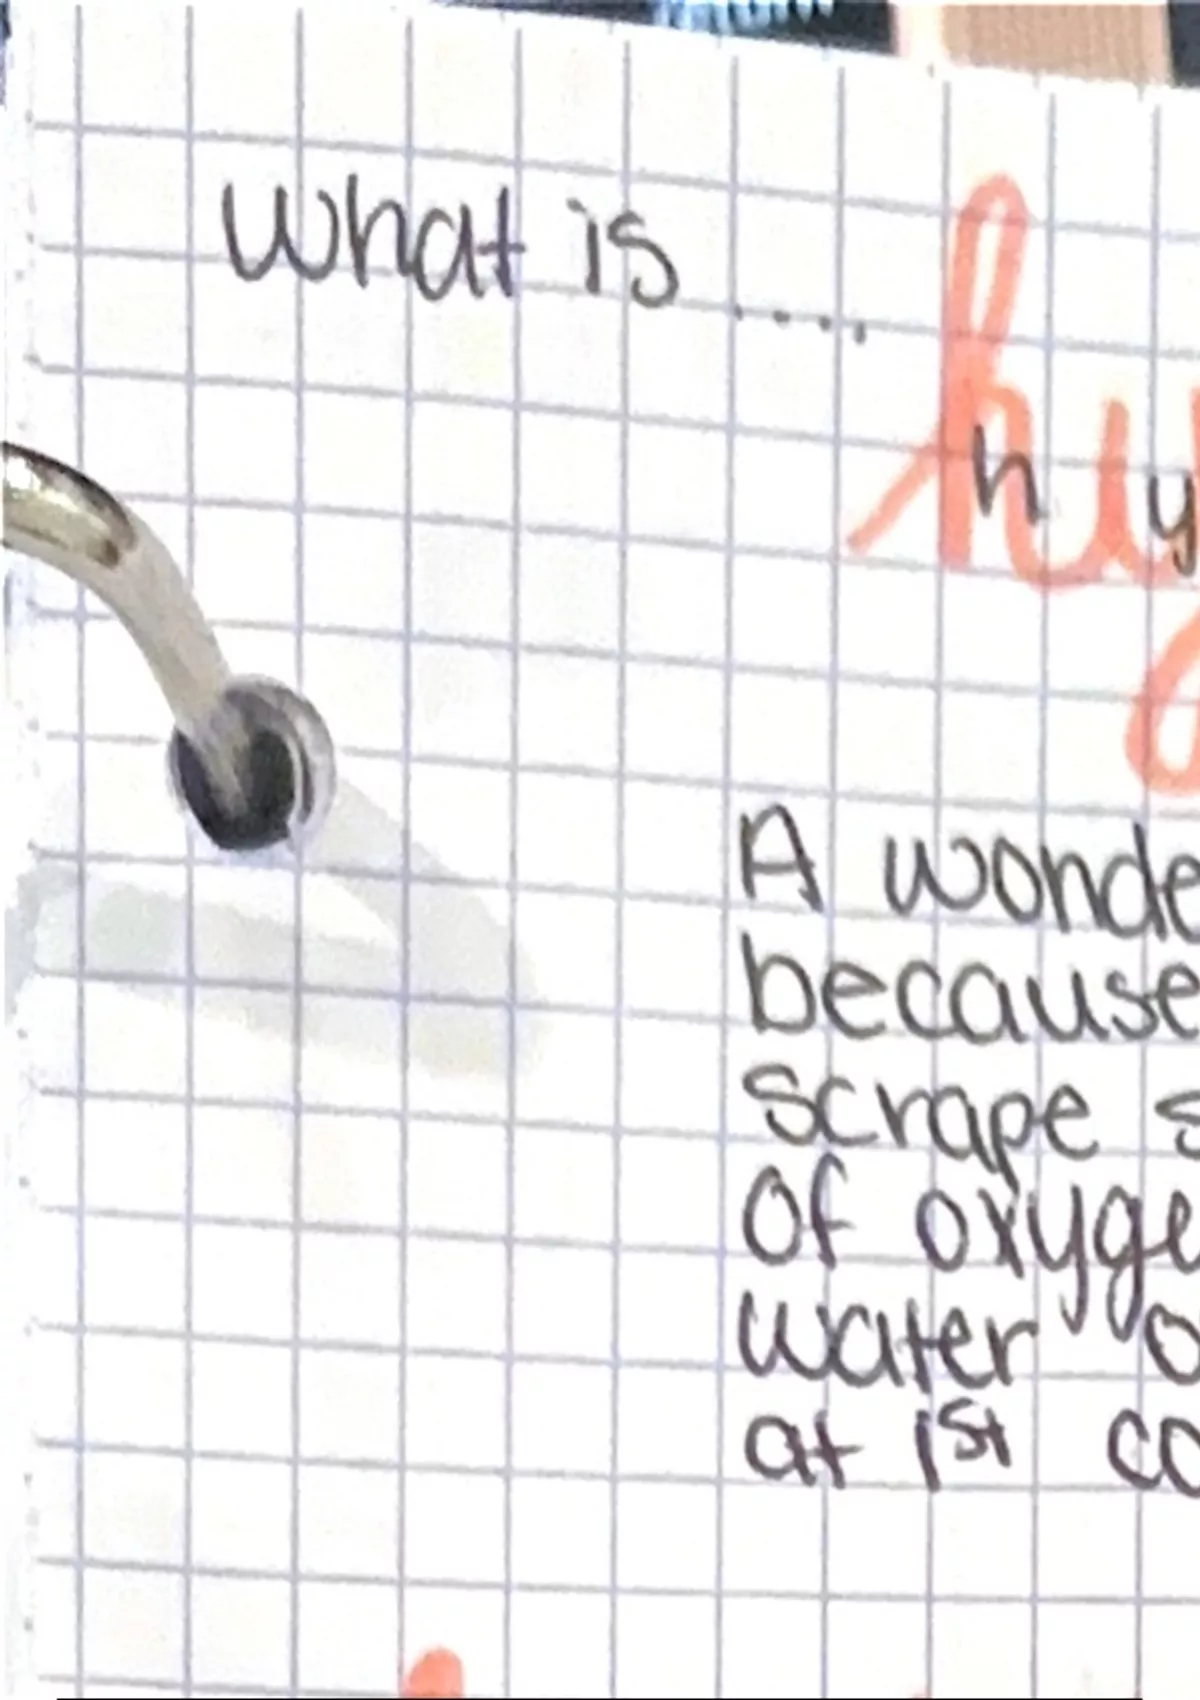 What is ....
hy
h y
A wonde
because
scrape s
of oxyge
water o
at 1st co